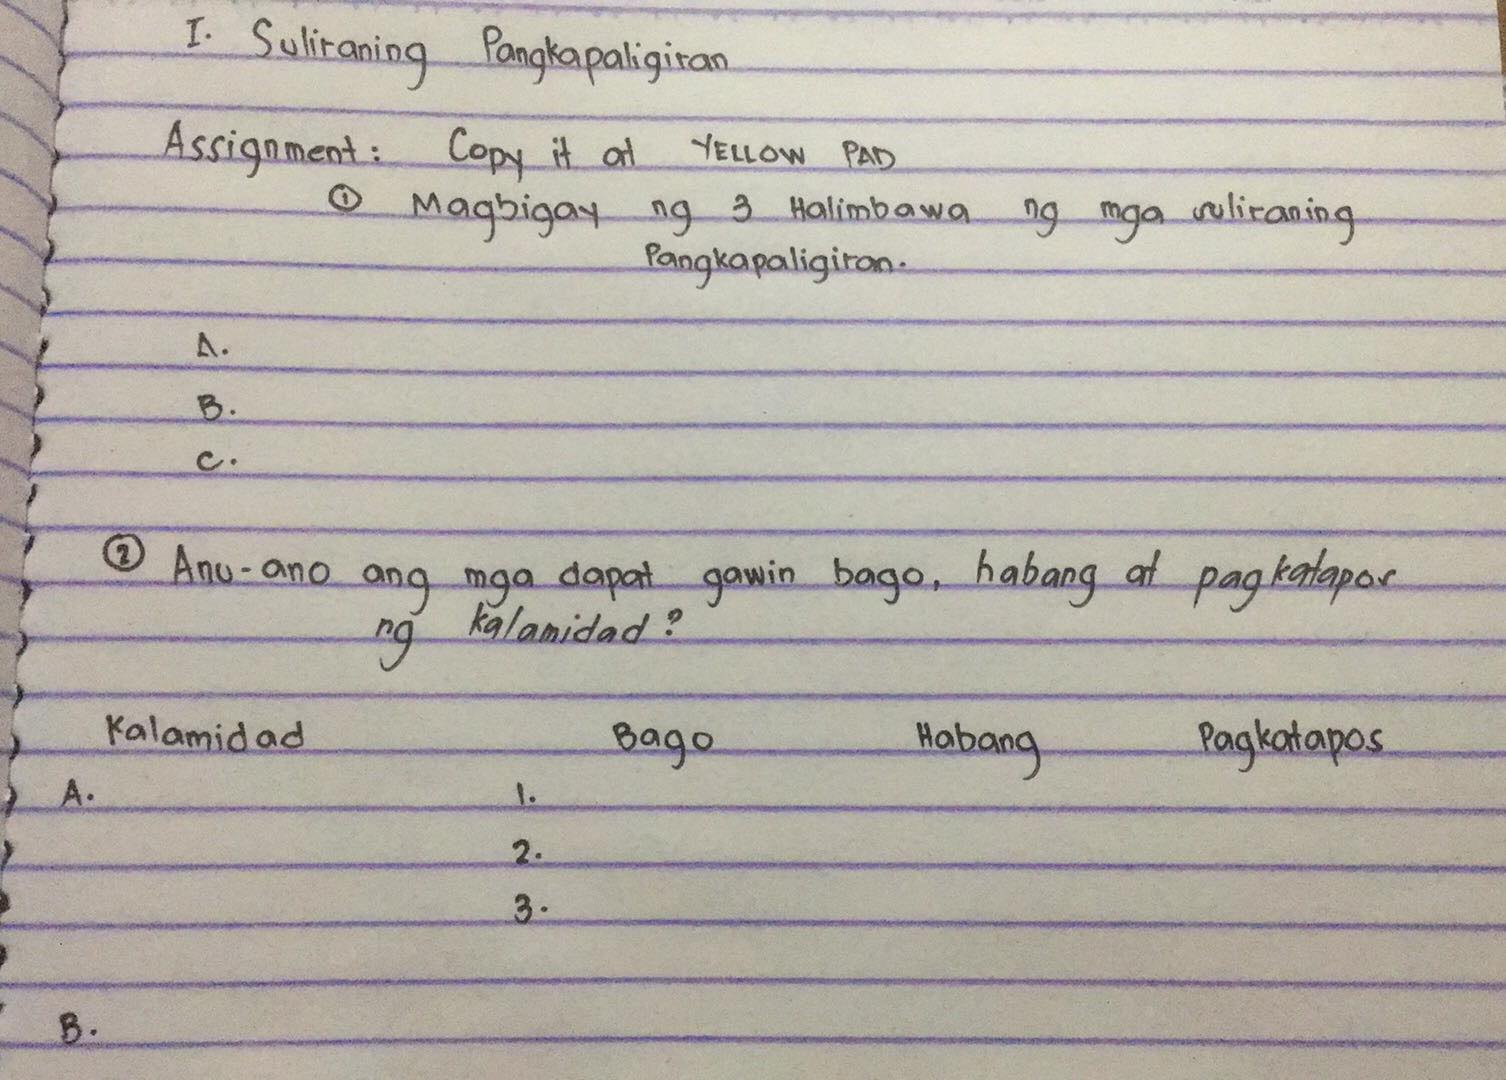 I. Suliraning Pangkapaligiran
Assignment: Copy it at YELLOW PAD
① Magbigay ng 3 Halimbawa ng mga suliraning
Pangkapaligiran.
A.
B.
C.
② Anu-ano ang mga dapat gawin bago, habang at pagkatapos
ng kalamidad?
Kalamidad Bago Habang Pagkatapos
A. 1.
2.
3.
B.